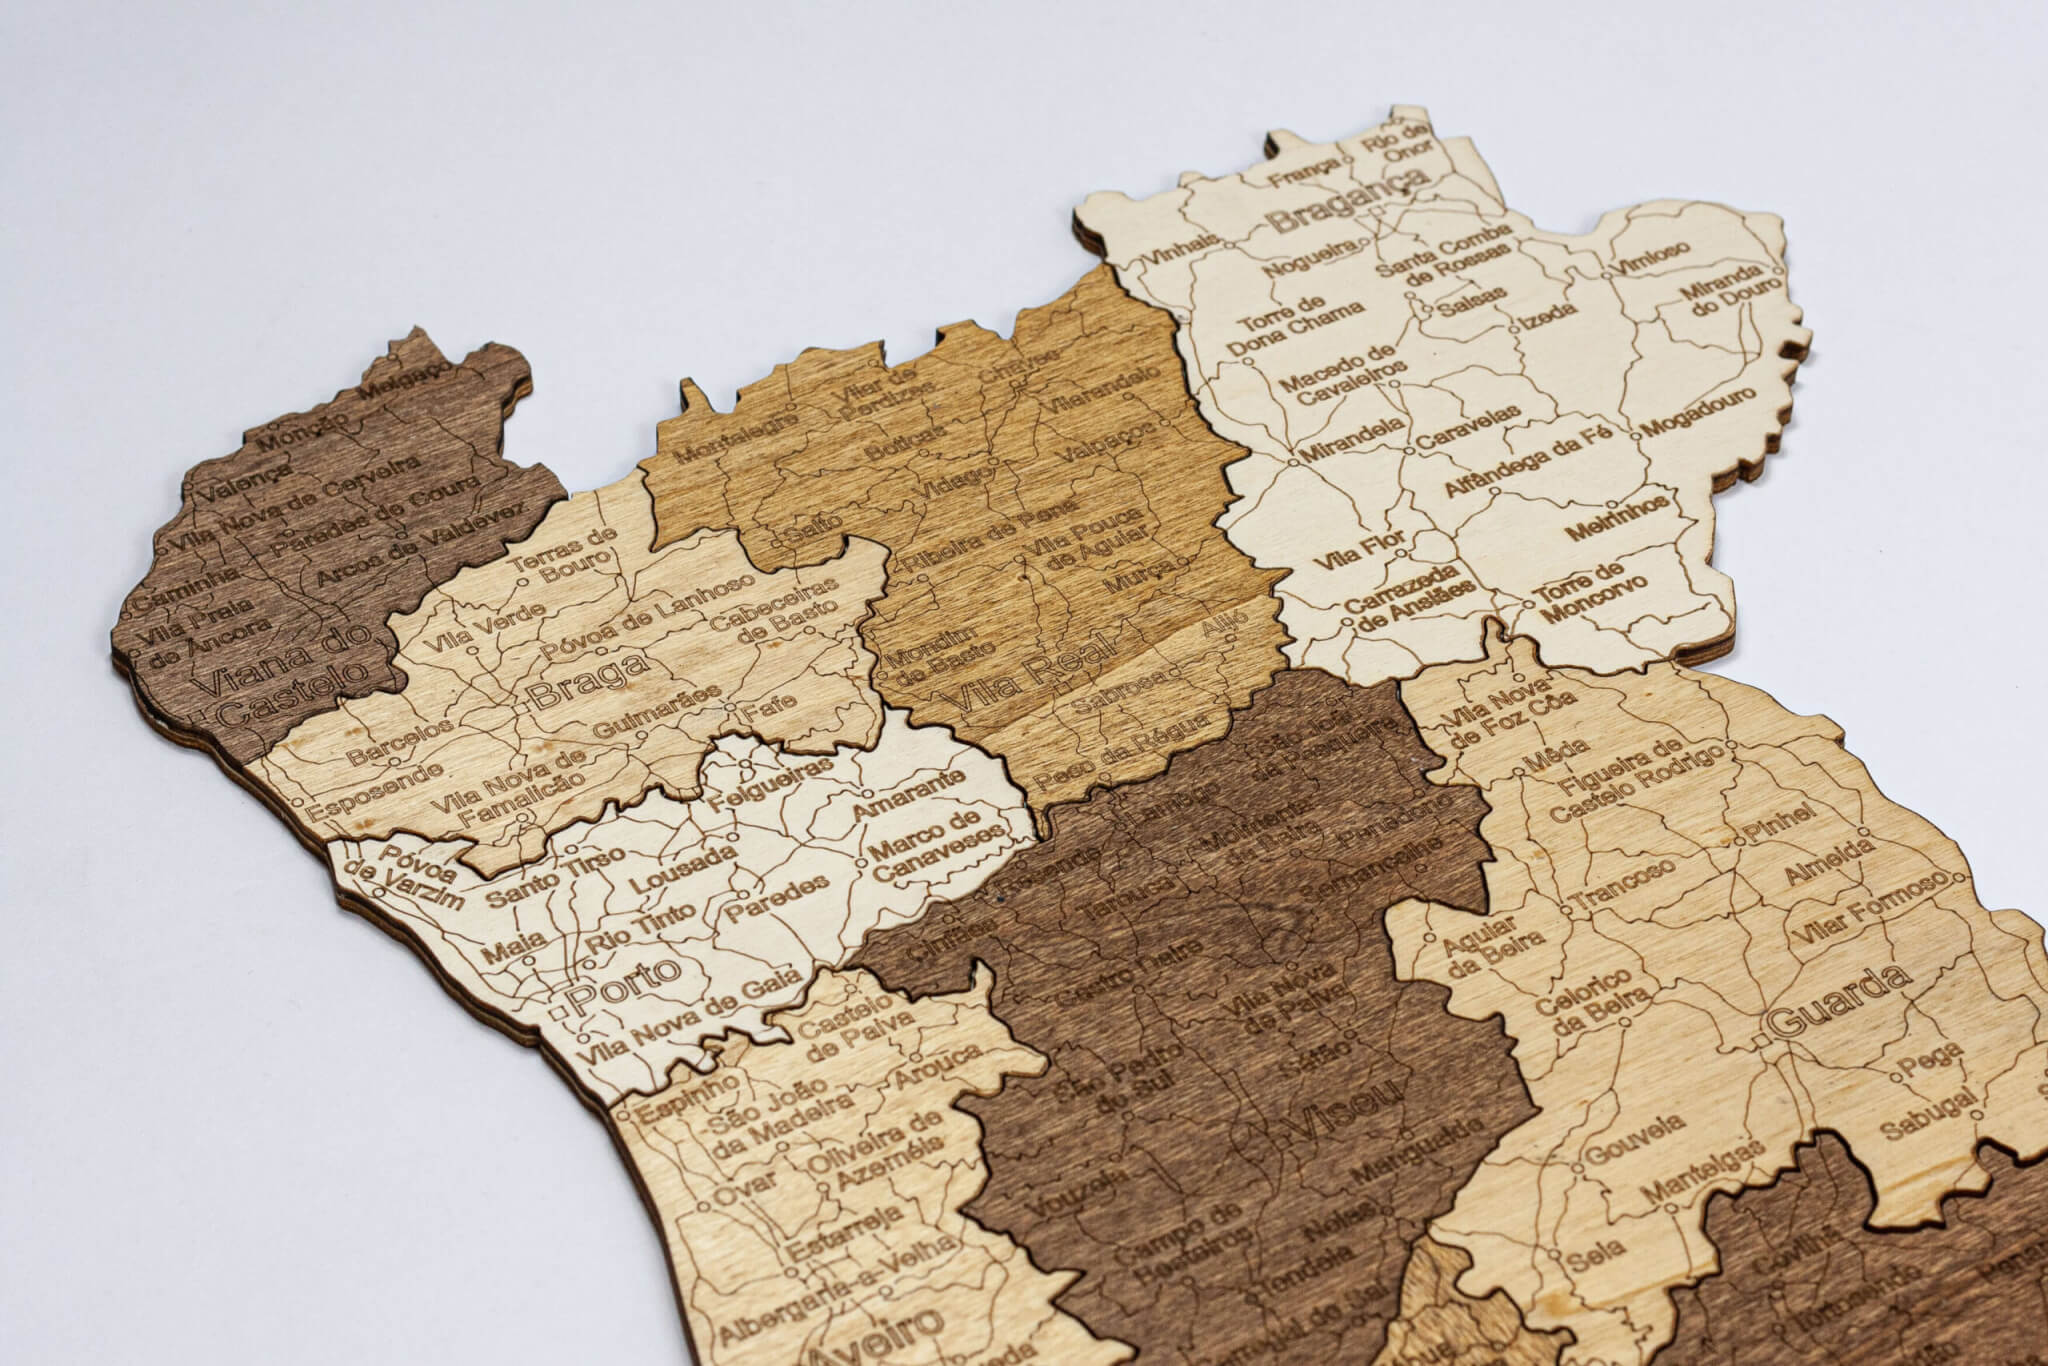 Melgaço
Monção
Valença
Vila Nova de Cerveira
Paredes de Coura
Arcos de Valdevez
Caminha
Vila Praia
de Ancora
Viana do
Castelo
Terras de
Bouro
Vila Verde
Póvoa de Lanhoso
Cabeceiras
de Basto
Braga
Guimarães
Fafe
Barcelos
Esposende
Vila Nova de
Famalicão
Montalegre
Vilar de
Perdizes
Chaves
Vilarandelo
Boticas
Valpaços
Vidago
Salto
Ribeira de Pena
Vila Pouca
de Aguiar
Murça
Mondim
de Basto
Alijó
Vila Real
Sabrosa
Peso da Régua
Rio de
Onor
França
Bragança
Vinhais
Nogueira
Santa Comba
de Rossas
Vimioso
Miranda
do Douro
Salsas
Izeda
Torre de
Dona Chama
Macedo de
Cavaleiros
Mirandela
Caravelas
Mogadouro
Alfândega da Fé
Meirinhos
Vila Flor
Carrazeda
de Ansiães
Torre de
Moncorvo
Póvoa
de Varzim
Santo Tirso
Felgueiras
Amarante
Lousada
Marco de
Canaveses
Paredes
Rio Tinto
Maia
Porto
Vila Nova de Gaia
São João
da Pesqueira
Lamego
Moimenta
da Beira
Penedono
Sernancelhe
Resende
Tarouca
Cinfães
Castro Daire
Vila Nova
de Paiva
São Pedro
do Sul
Sátão
Viseu
Mangualde
Vouzela
Campo de
Besteiros
Nelas
Tondela
Carregal do Sal
Vila Nova
de Foz Côa
Mêda
Figueira de
Castelo Rodrigo
Pinhel
Almeida
Trancoso
Vilar Formoso
Aguiar
da Beira
Celorico
da Beira
Guarda
Pega
Sabugal
Gouveia
Manteigas
Seia
Castelo
de Paiva
Arouca
Espinho
São João
da Madeira
Oliveira de
Azeméis
Ovar
Estarreja
Albergaria-a-Velha
Aveiro
Covilhã